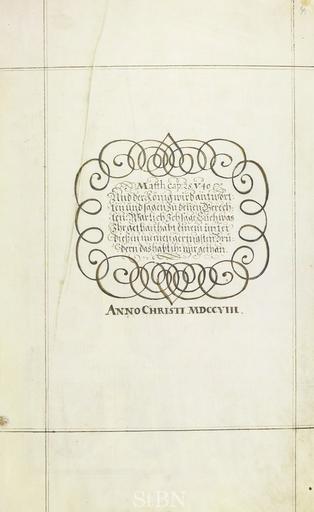 Matth cap 25 V 40
Und der König wird antwor-
ten und sagen zu denen Gerech-
ten: Warlich Ich sage Euch was
Ihr gethan habt einem unter
diesen meinen geringsten Brü-
dern das habt ihr mir gethan.
ANNO CHRISTI MDCCVIII.
StBN